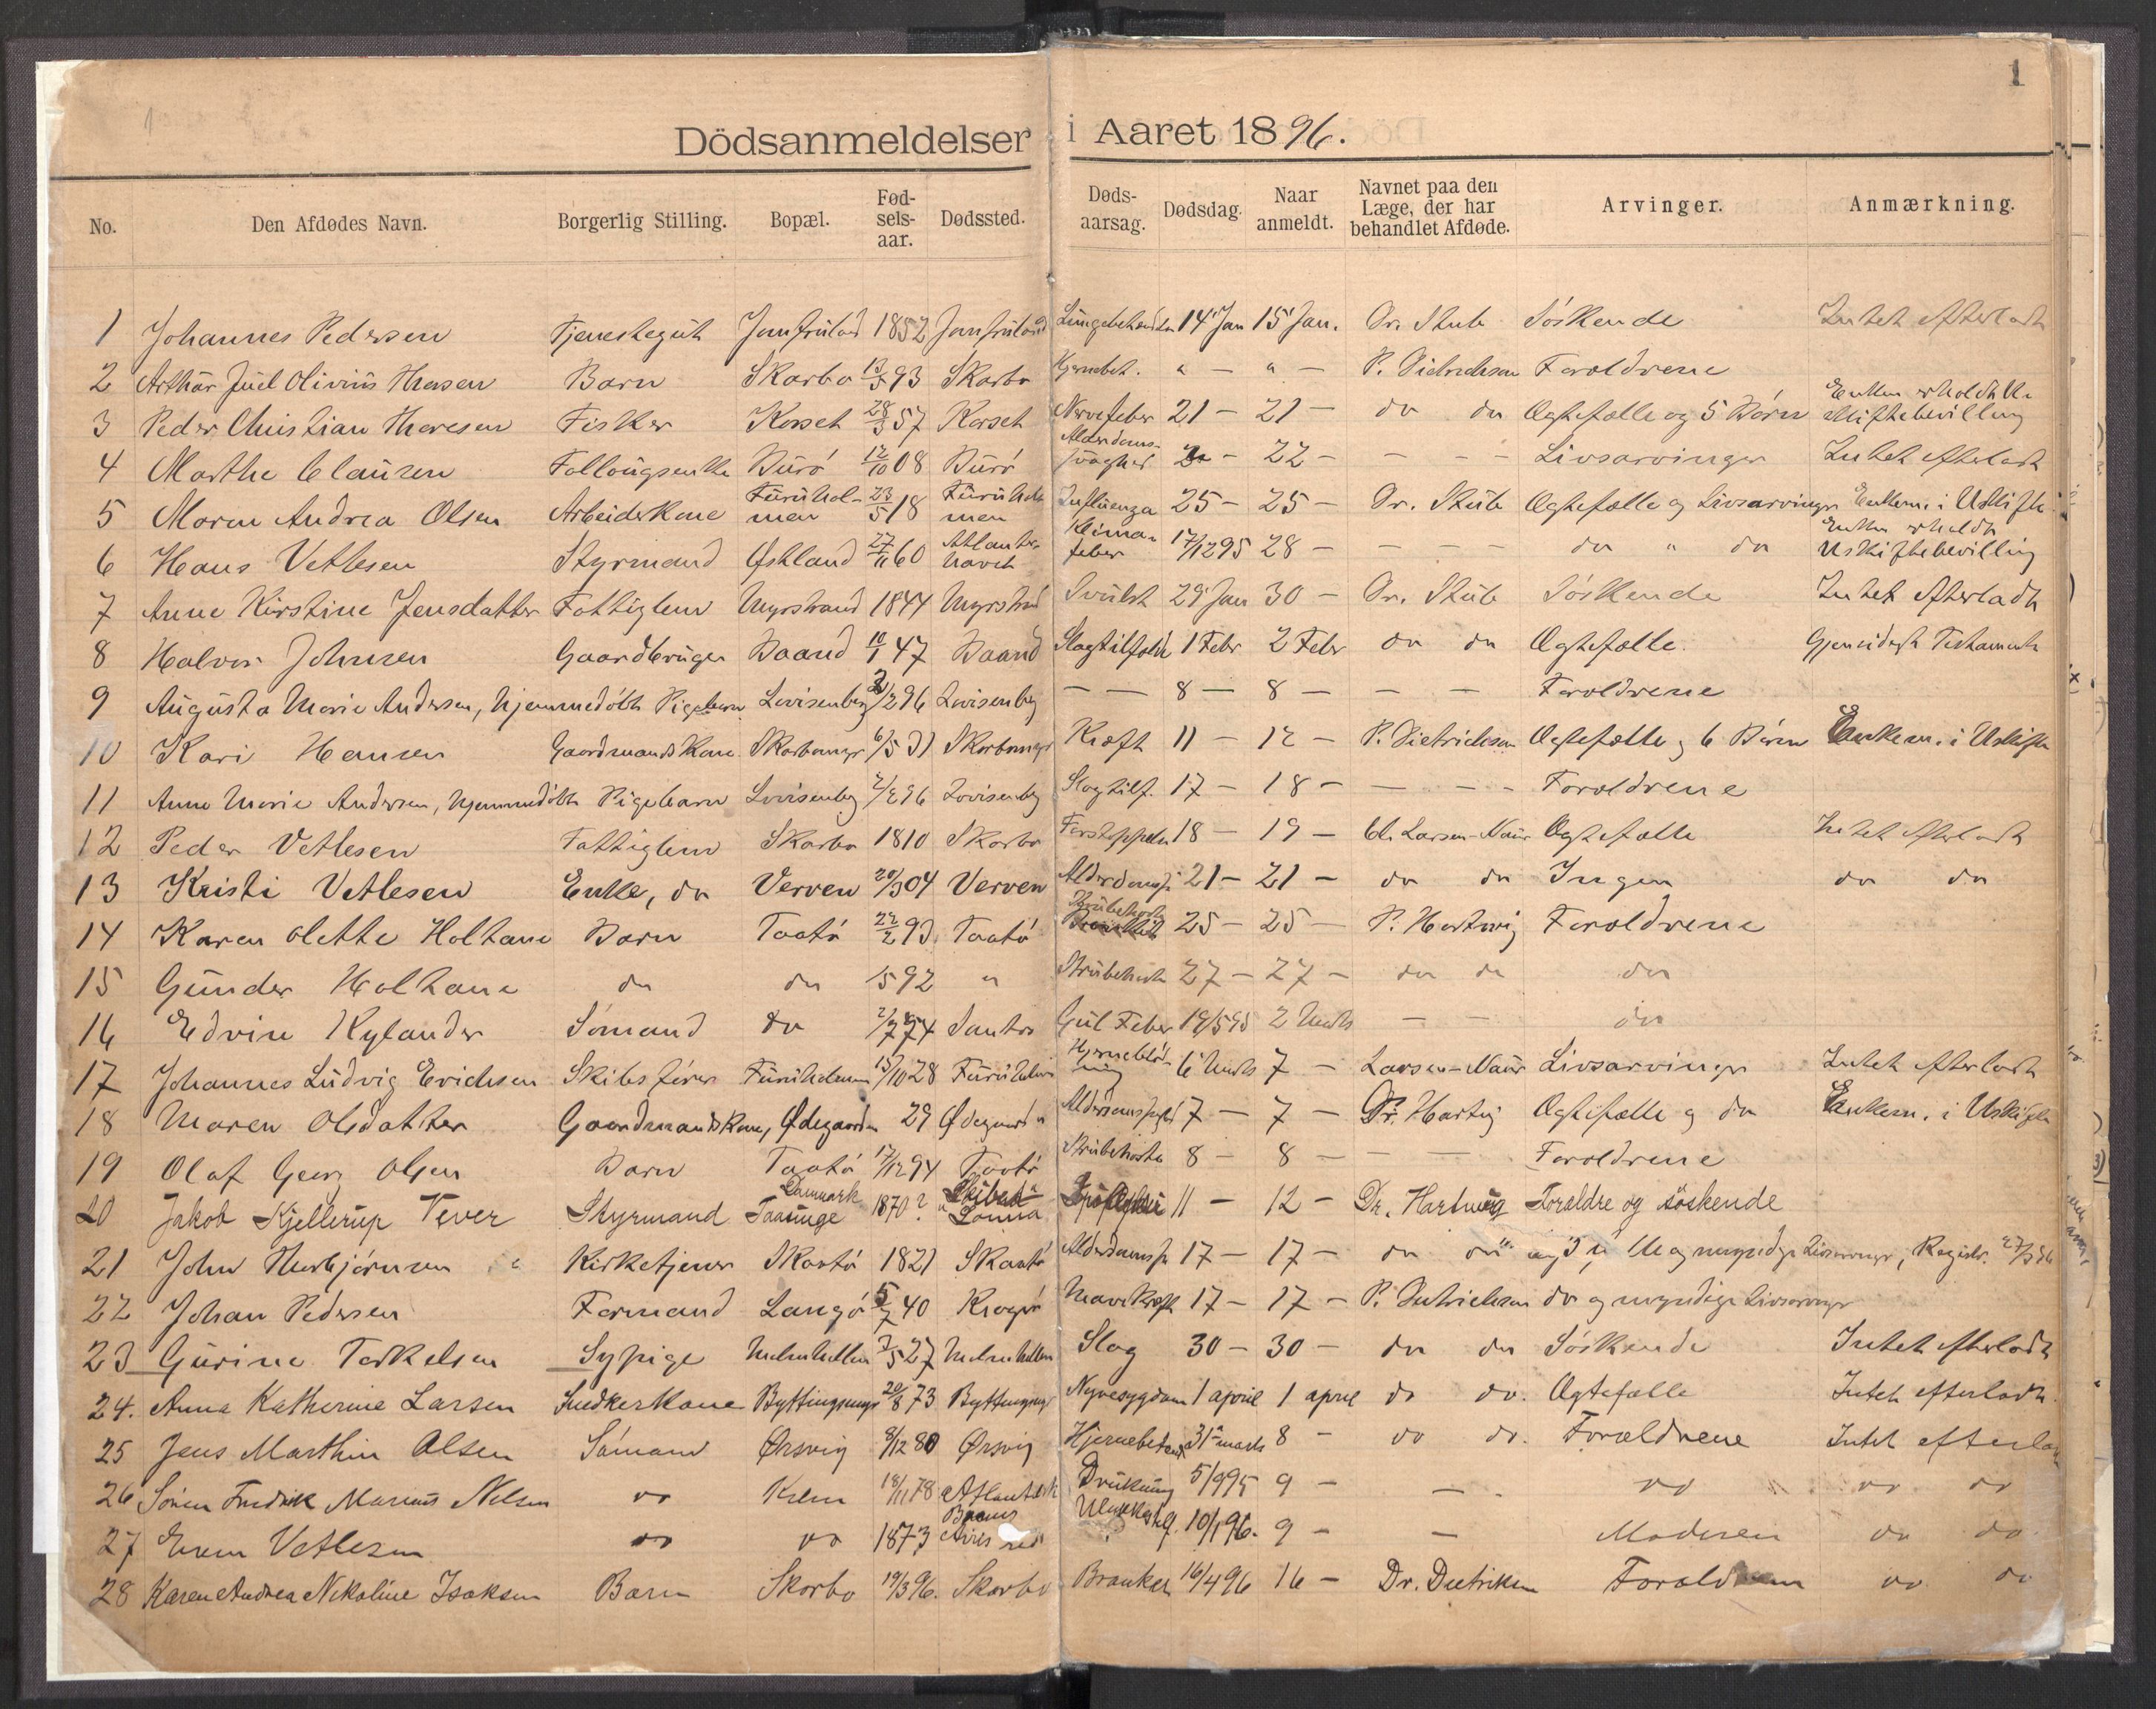 1
Dödsanmeldelser i Aaret 1896.
No. Den Afdødes Navn. Borgerlig Stilling. Bopæl. Fød-sels-aar. Dødssted. Døds-aarsag. Dødsdag. Naar anmeldt. Navnet paa den Læge, der har behandlet Afdøde. Arvinger. Anmærkning.
1 Johannes Pedersen Tjenestegut Jomfruland 1852 Jomfruland 14' Jan 15' Jan. Dr. Stub Söskende Intet efterladt
2 Arthur Juel Olivius Thorsen Barn Skarbo 93 Skarbo Hjernebet. " — " — P. Dietrichson Foroldrene
3 Peder Christian Thoresen Fisker Korset 57 Korset Nervefeber 21 — 21 — do do Ægtefælle og 5 Börn Enken erholdt Uskiftebevilling
4 Marthe Clausen Burö 12/10 08 Burö Alderdoms-svaghed — 22 — — — Livsarvinger Intet efterladt
5 Maren Andrea Olsen Arbeiderkone Furuholmen 23/5 18 Furuholmen Influenza 25 — 25 — Dr. Stub Ægtefælle og Livsarvinger Enkem. i Uskifte
6 Hans Vetlesen Styrmand Østland 27/11 60 Atlanterhavet Klimafeber 17/12 95 28 — — — — do " do Enken erholdt Uskiftebevilling
7 Anne Kirstine Jensdatter Fattiglem Myrstrand 1844 Myrstrand Svulst 29 Jan 30 — Dr. Stub Söskende Intet efterladt
8 Halvor Johnsen Gaardbruger Baand 10/1 47 Baand Slagtilfælde 1 Febr 2 Febr do do Ægtefælle. Gjensidigt Testamente
9 Augusta Marie Andersen, hjemmedöbt Pigebarn Lovisenberg 2/2 96 Lovisenberg — — 8 — 8 — — — Foroldrene
10 Kari Hansen Gaardmandskone 6/5 31 Kræft 11 — 12 — P. Dietrichson Ægtefælle og 6 Börn Enkem. i Uskifte
11 Anne Marie Andersen, hjemmedöbt Pigebarn Lovisenberg 2/2 96 Lovisenberg Slagtilf. 17 — 18 — — — Foroldrene
12 Peder Vetlesen Fattiglem Skarbo 1810 Skarbo 18 — 19 — Larsen-Naur Ægtefælle Intet efterladt
13 Kristi Vetlesen Enke, do Verven 20/3 04 Verven 21 — 21 — do do Ingen do do
14 Karen Olette Holtane Barn Taatö 22/2 93 Taatö Strubehoste 25 — 25 — P. Hartwig Foroldrene
15 Gunder Holtane do do 92 " Strubehoste 27 — 27 — do do do
16 Edvin Nylander Sömand do 2/7 74 Santos Gul Feber 19/5 95 2 Marts — — do
17 Johannes Ludvig Erichsen Skibsförer Furuholmen 15/10 28 Furuholmen Hjerneblödning 6 Marts 7 — Larsen-Naur Livsarvinger Intet efterladt
18 Maren Olsdatter Gaardmandskone, Ødegaarden 29 Ødegaarden 7 — 7 — Dr. Hartvig Ægtefælle og do Enkem. i Uskifte
19 Olaf Georg Olsen Barn Taatö 17/12 94 Taatö Strubehoste 8 — 8 — — — Foroldrene
20 Jakob Kjellerup Vever Styrmand Danmark Taasinge 1870? Skibet "Lonna" 11 — 12 — Dr. Hartwig Foraldre og söskende
21 John Thorbjörnsen Kirketjener Skaatö 1821 Skaatö 17 — 17 — do do
22 Johan Pedersen Formand Langö 5/7 40 Kragerö Mavekræft 17 — 17 — P. Dietrichson do og myndige Livsarvinger
23 Gurine Terkelsen Sypige 27 Slag 30 — 30 — do do Söskende Intet efterladt
24. Anna Katherine Larsen Snedkerkone 20/8 73 Nyresygdom 1 april 1 april do do. Ægtefælle Intet efterladt.
25 Jens Marthin Olsen Sömand Ørsvig 8/12 80 Ørsvig 31 marts 8 — do do. Forældrene Intet efterladt
26 Sören Fredrik Marius Nilsen do Kilen 18/11 78 Atlanterh Drukning 5/9 95 9 — — do do do
27 Even Vetlesen do do 1873 Buenos Aires red Ulykkestilf. 10/1 96. 9 — — Moderen do do
28 Karen Andrea Nikoline Isaksen Barn Skorbo 19/3 96. Skorbo 16/4 96 16 — Dr. Dietriksen Foraldrene do do